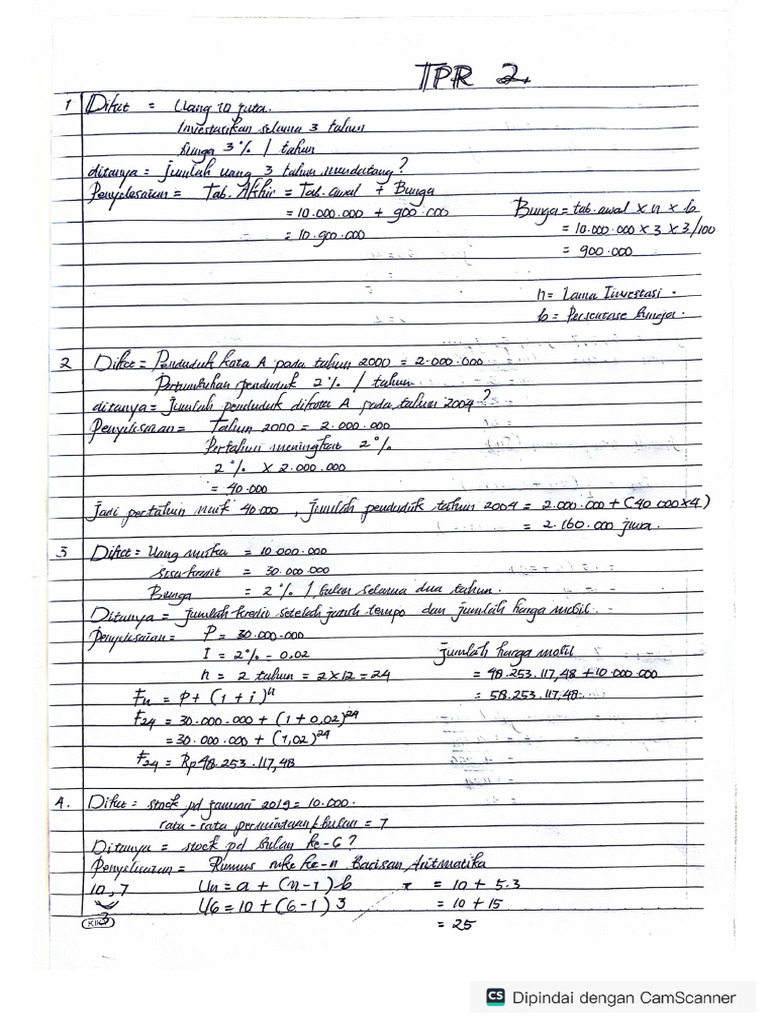 TPR 2.
1 Diket = Uang 10 juta.
Investasikan selama 3 tahun
Bunga 3% / tahun
ditanya = Jumlah uang 3 tahun mendatang?
Penyelesaian = Tab. Akhir = Tab. awal + Bunga
= 10.000.000 + 900.000
= 10.900.000
Bunga = tab. awal x n x b
= 10.000.000 x 3 x 3/100
= 900.000
n = Lama Investasi.
b = Persentase bunga.
2 Diket = Penduduk kota A pada tahun 2000 = 2.000.000
Pertumbuhan penduduk 2% / tahun
ditanya = Jumlah penduduk dikota A pada tahun 2004?
Penyelesaian = Tahun 2000 = 2.000.000
Pertahun meningkat 2%
2% x 2.000.000
= 40.000
Jadi pertahun naik 40.000, Jumlah penduduk tahun 2004 = 2.000.000 + (40.000x4)
= 2.160.000 jiwa.
3 Diket = Uang muka = 10.000.000
Sisa kredit = 30.000.000
Bunga = 2% / bulan selama dua tahun.
Ditanya = Jumlah kredit setelah jatuh tempo dan jumlah harga mobil.
Penyelesaian = P = 30.000.000
I = 2% = 0.02
n = 2 tahun = 2x12 = 24
Fn = P + (1 + i)^n
F24 = 30.000.000 + (1 + 0,02)^24
= 30.000.000 + (1,02)^24
F24 = Rp48.253.117,48
Jumlah harga mobil
= 48.253.117,48 + 10.000.000
= 58.253.117,48.
4. Diket = stock pd januari 2019 = 10.000.
rata-rata permintaan/bulan = 7
Ditanya = stock pd bulan ke-6?
Penyelesaian = Rumus ke-n Barisan Aritmatika
10,7
3
Un = a + (n-1) b
U6 = 10 + (6-1) 3
= 10 + 5.3
= 10 + 15
= 25
KIKY
CS Dipindai dengan CamScanner